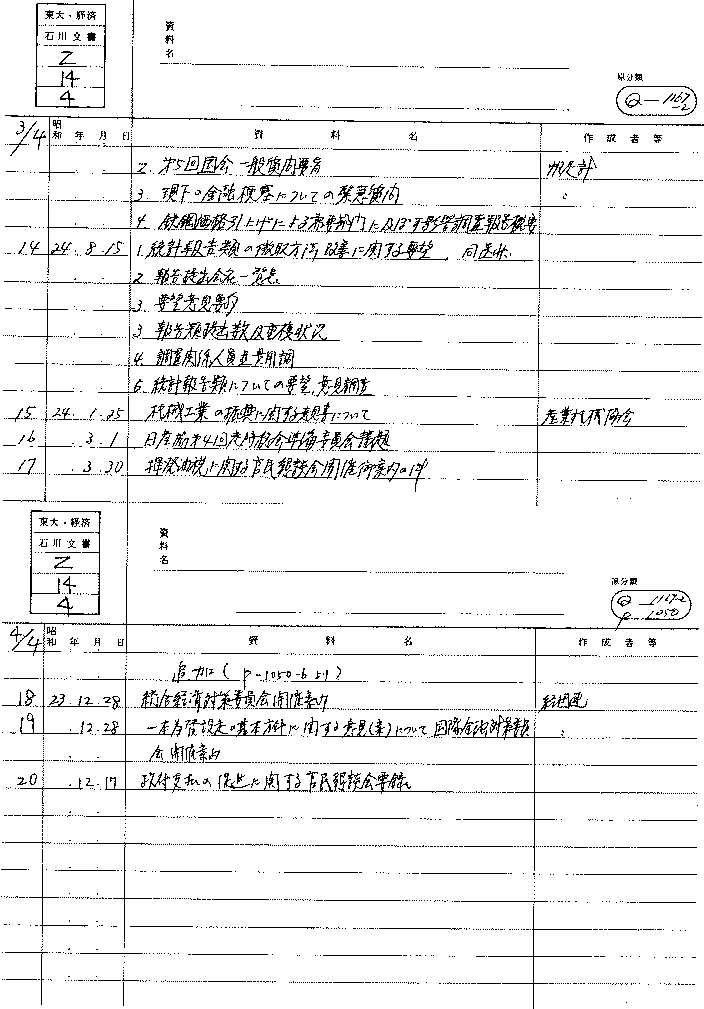 東大・経済
石川文書
Z
14
4
資料名
原分類
Q-1167-2
3/4
昭和 年 月 日 資料名 作成者等
2. 第5回国会 一般質問要旨
3. 現下の金融梗塞についての緊急質問 〃
4. 鉄鋼価格引上げによる需要部門に及ぼす影響調査報告概要
14 24.8.15 1. 統計報告類の徴取方法改善に関する要望、同送状
2. 報告提出会社一覧表
3. 要望意見要約
3. 報告類提出数及重複状況
4. 調査関係人員並費用調
5. 統計報告類についての要望、意見調査
15 24.1.25 機械工業の振興に関する懇請について 産業機械協会
16 .3.1 日産協第41回 準備委員会議題
17 .3.30 揮発油税に関する官民懇談会開催御案内の件
東大・経済
石川文書
Z
14
4
資料名
原分類
Q-1167-2
P-1050
4/4
昭和 年 月 日 資料名 作成者等
追加(P-1050-6より)
18 23.12.28 総合経済対策委員会開催案内 経団連
19 .12.28 一本為替設定の基本方針に関する意見(案)について 国際金融対策委員
会開催案内 〃
20 .12.17 政府支払の促進に関する官民懇談会要録